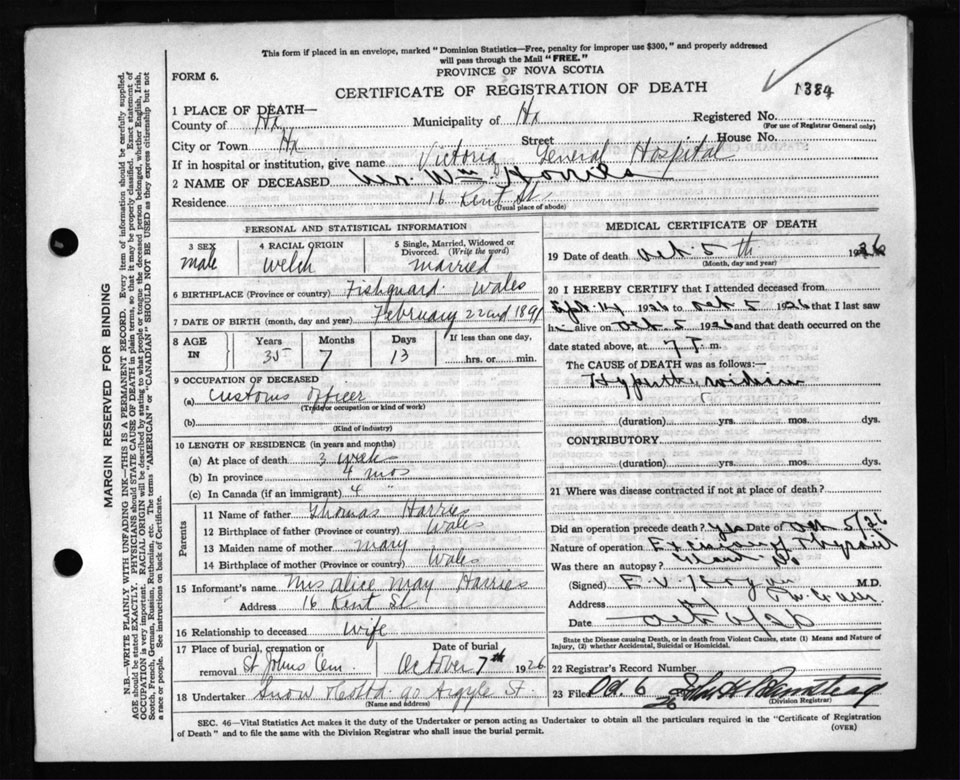 This form if placed in an envelope, marked "Dominion Statistics—Free, penalty for improper use $300," and properly addressed
will pass through the Mail "FREE."
PROVINCE OF NOVA SCOTIA
FORM 6.
CERTIFICATE OF REGISTRATION OF DEATH
1384
1 PLACE OF DEATH—
County of Hx Municipality of Hx Registered No.
(For use of Registrar General only)
City or Town Hx Street House No.
If in hospital or institution, give name Victoria General Hospital
2 NAME OF DECEASED Mr. Wm. Harries
Residence 16 Kent St
(Usual place of abode)
PERSONAL AND STATISTICAL INFORMATION
3 SEX
male
4 RACIAL ORIGIN
Welch
5 Single, Married, Widowed or
Divorced. (Write the word)
married
6 BIRTHPLACE (Province or country) Fishguard Wales
7 DATE OF BIRTH (month, day and year) February 22nd 1891
8 AGE
IN
Years
35
Months
7
Days
13
If less than one day,
hrs. or min.
9 OCCUPATION OF DECEASED
(a) Customs Officer
(Trade or occupation or kind of work)
(b)
(Kind of industry)
10 LENGTH OF RESIDENCE (in years and months)
(a) At place of death 3 weeks
(b) In province 4 mos
(c) In Canada (if an immigrant) 4 "
Parents
11 Name of father Thomas Harries
12 Birthplace of father (Province or country) Wales
13 Maiden name of mother Mary
14 Birthplace of mother (Province or country) Wales
15 Informant's name Mrs Alice May Harries
Address 16 Kent St
16 Relationship to deceased Wife
17 Place of burial, cremation or
removal St Johns Cem.
Date of burial
October 7th 1926
18 Undertaker Snow & Co Ltd. 90 Argyle St.
(Name and address)
MEDICAL CERTIFICATE OF DEATH
19 Date of death Oct 5th 1926
(Month, day and year)
20 I HEREBY CERTIFY that I attended deceased from
Sept. 14 1926 to Oct 5 1926 that I last saw
him alive on Oct. 5 1926 and that death occurred on the
date stated above, at 7 P. m.
The CAUSE OF DEATH was as follows:—
(duration) yrs. mos. dys.
CONTRIBUTORY
(duration) yrs. mos. dys.
21 Where was disease contracted if not at place of death?
Did an operation precede death? Yes Date of Oct 5/26
Nature of operation Thyroid
Was there an autopsy? No
(Signed) E.V. Hogan M.D.
Address
Date Oct 6/26
State the Disease causing Death, or in death from Violent Causes, state (1) Means and Nature of
Injury, (2) whether Accidental, Suicidal or Homicidal.
22 Registrar's Record Number
23 Filed Oct. 6 26
(Division Registrar)
SEC. 46—Vital Statistics Act makes it the duty of the Undertaker or person acting as Undertaker to obtain all the particulars required in the "Certificate of Registration
of Death" and to file the same with the Division Registrar who shall issue the burial permit.
(OVER)
MARGIN RESERVED FOR BINDING
N.B.—WRITE PLAINLY WITH UNFADING INK—THIS IS A PERMANENT RECORD. Every item of information should be carefully supplied.
AGE should be stated EXACTLY. PHYSICIANS should STATE CAUSE OF DEATH in plain terms, so that it may be properly classified. Exact statement of
OCCUPATION is very important. RACIAL ORIGIN will be described by stating to what people or tongue the deceased person belonged, whether English, Irish,
Scotch, French, German, Russian, Ruthenian, etc. The terms "AMERICAN" or "CANADIAN" SHOULD NOT BE USED as they express citizenship but not
a race or people. See instructions on back of Certificate.